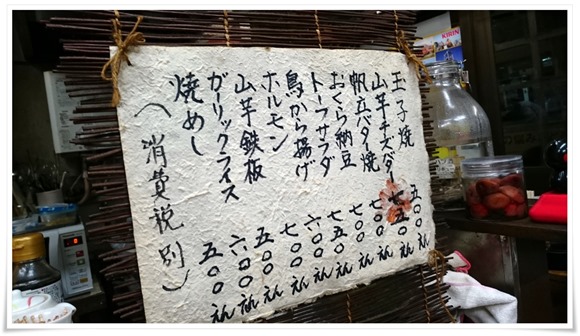 玉子焼 五〇〇えん
山芋チーズバター 七五〇えん
帆立バター焼 七〇〇えん
おくら納豆 えん
トーフサラダ えん
鳥から揚げ 六〇〇えん
ホルモン 七〇〇えん
山芋鉄板 五〇〇えん
ガリックライス 六〇〇えん
焼めし 五〇〇えん
(消費税別)
KIRIN